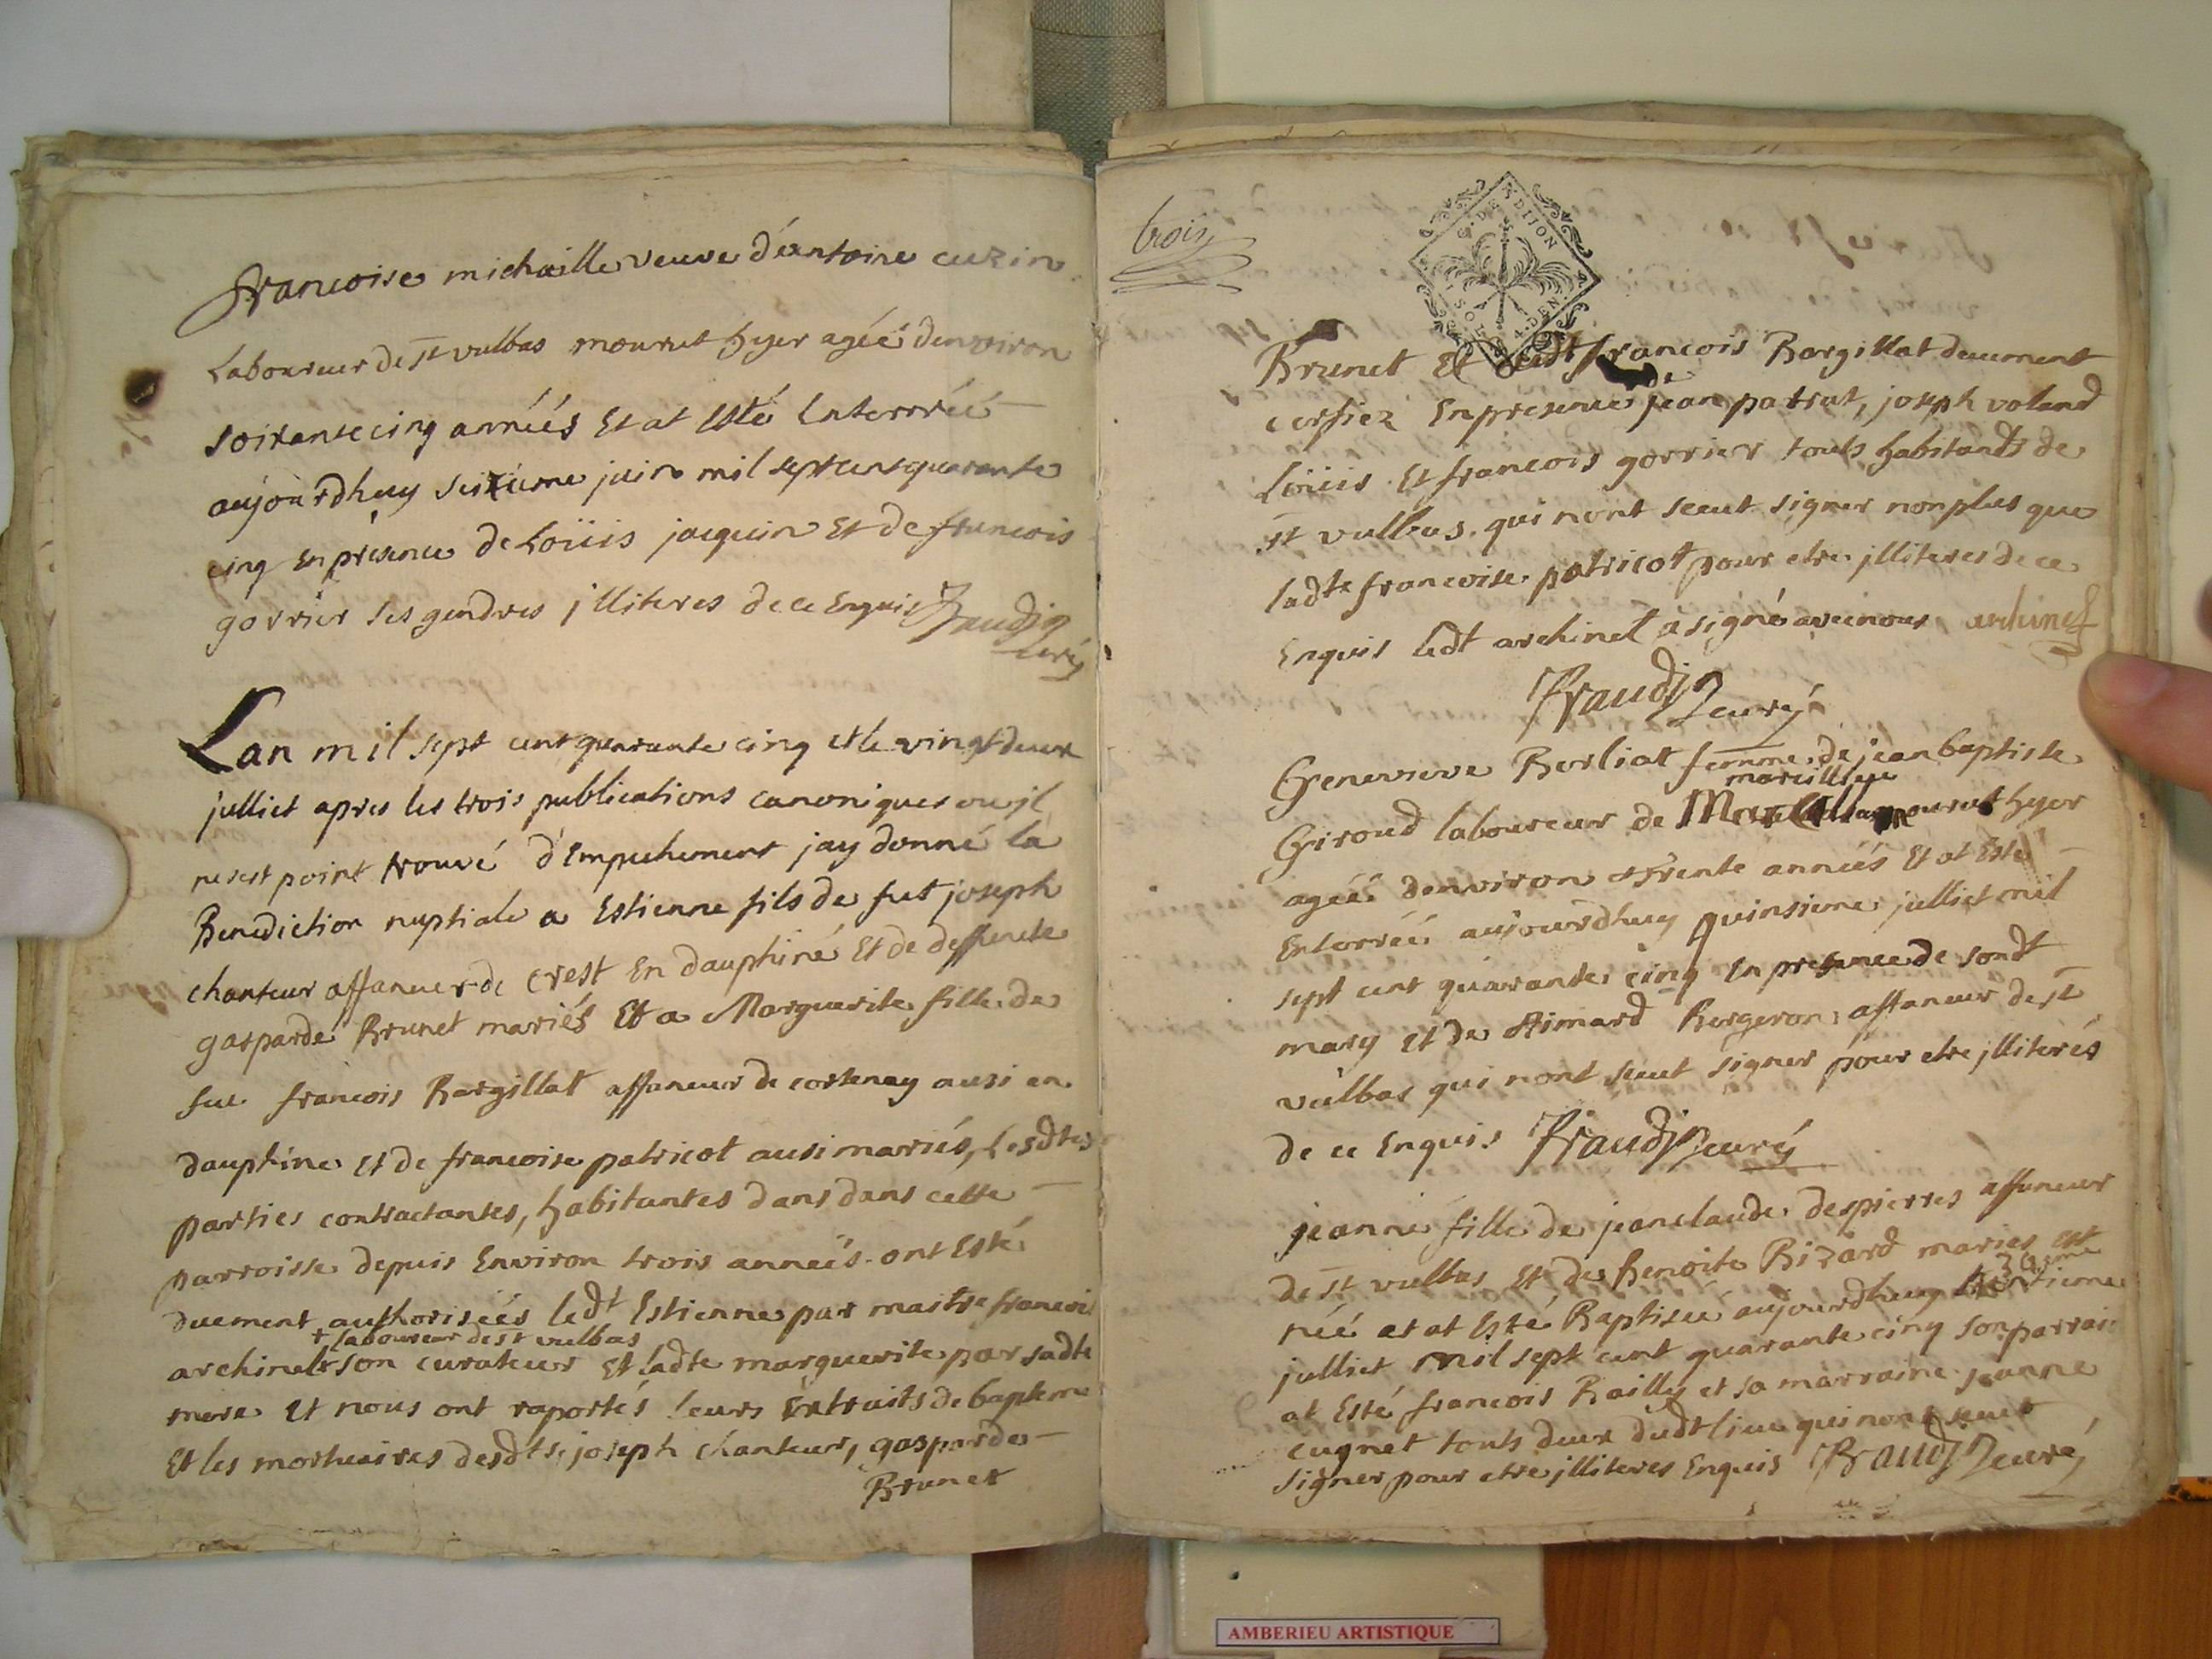 francoise michaille veuve d'éantoine cuzin
Laboureur de st vulbas mourut hyer agéé denviron
soixante cinq annéés Et at Esté Enterréé
aujourdhuy seizieme juin mil sept cent quarante
cinq En présence de Loüis jacquin Et de francois
gorrier ses gendres jlliteres de ce Enquis
curé
Lan mil sept cent quarante cinq et le vingt deux
julliet apres les trois publications canoniques ou jl
ne sest point trouvé d'Empechement jay donné la
Benediction nuptiale a Estienne fils de fut joseph
chanteur affaneur de crest En dauphiné Et de deffuncte
gasparde Brunet mariés Et a Marguerite fille de
fut francois Bargillat affaneur de cortenay ausi en
dauphine et de francoise patricot ausi mariés, Lesdtes
parties contractantes, habitantes dans dans cette
parroisse depuis Environ trois annéés ont Esté
duement authoriséés ledt Estienne par maitre francois
+ laboureur de st vulbas
archinet + son curateur Et ladte marguerite par sadte
mere Et nous ont raportés leurs Extraits de bapteme
Et les mortuaires desdts joseph chanteur, gasparde
Brunet
trois
G. DE DIJON
4. DEN.
Brunet Et dudt francois Bargillat deument
de
cerfiez En presence jean patrat, joseph voland
Loüis Et francois gorrier touts habitants de
st vulbas qui nont sceut signer non plus que
ladte francoise patricot pour etre jlliteres de ce
Enquis ledt archinet à signé avec nous archinet
curé
Genevieve Berliat femme de jean baptiste
marcillieu
Giroud laboureur de mourut hyer
agéé denviron trente annéés Et at Esté
Enterréé aujourdhuy quinsieme julliet mil
sept cent quarante cinq En presence de sondt
mary et de Aimard Bergeron affaneur de st
vulbas qui nont sceut signer pour etre jlliterés
de ce Enquis curé
jeanne fille de jean claude despierres affaneur
de st vulbas Et de Benoite Bizard mariés est
30eme
néé et at Esté Baptiséé aujourdhuy trentieme
julliet mil sept cent quarante cinq son parrain
at Esté francois Railly et sa marraine jeanne
cugnet touts deux dudt lieu qui nont sceut
signer pour etre jlliteres Enquis curé
AMBERIEU ARTISTIQUE